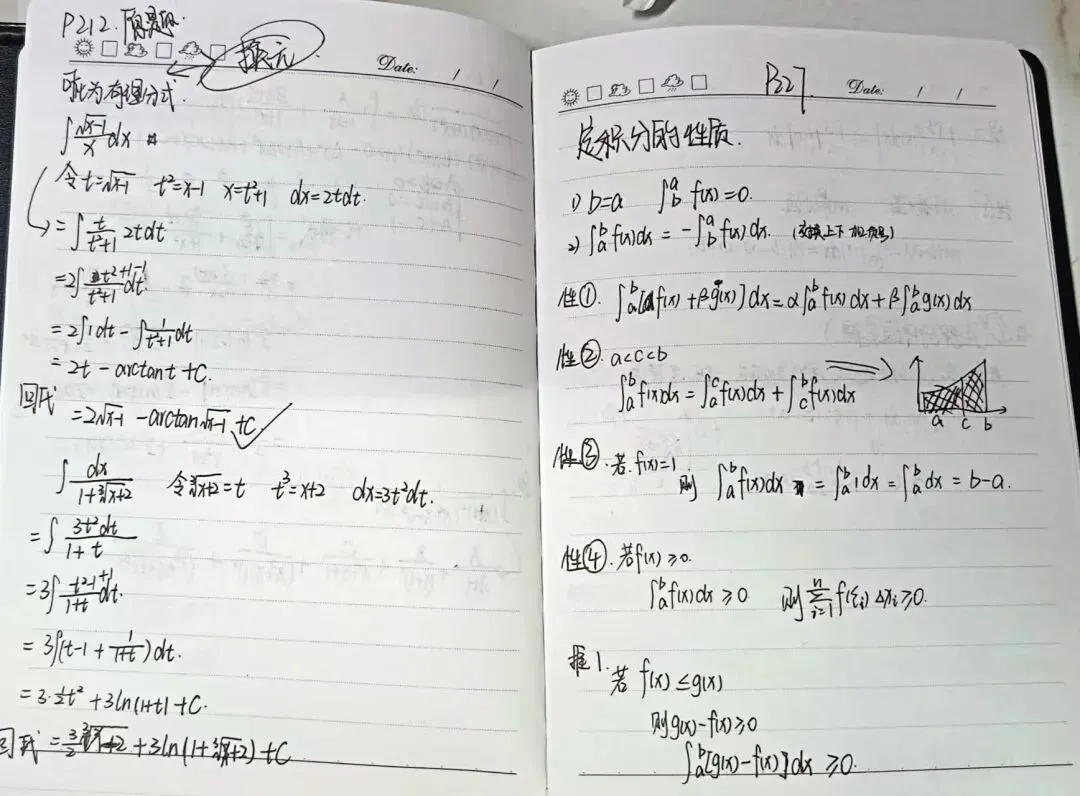 P212.
换元
Date: / /
化为有理分式.
∫ √(x-1)/x dx
令 t=√(x-1) t²=x-1 x=t²+1 dx=2tdt.
= ∫ t/(t²+1) 2tdt
=2∫ (t²+1-1)/(t²+1) dt
= 2∫1dt - ∫ 1/(t²+1) dt
= 2t - arctant + C.
回代 =2√(x-1) - arctan√(x-1) + C
∫ dx/(1+³√(x+2)) 令³√(x+2)=t t³=x+2 dx=3t²dt.
= ∫ 3t²dt/(1+t)
=3∫ (t²-1+1)/(1+t) dt.
= 3∫(t-1+1/(1+t))dt.
= 3·½t² + 3ln(1+t) + C.
回代 = 3/2 ³√(x+2) + 3ln(1+³√(x+2)) + C
P227.
Date: / /
定积分的性质.
1) b=a ∫_b^a f(x)=0.
2) ∫_a^b f(x)dx = -∫_b^a f(x)dx. (交换上下限)
性①. ∫_a^b[αf(x)+βg(x)]dx=α∫_a^b f(x)dx+β∫_a^b g(x)dx
性②. a<c<b
∫_a^b f(x)dx = ∫_a^c f(x)dx + ∫_c^b f(x)dx
a c b
性③. 若f(x)=1
则 ∫_a^b f(x)dx = ∫_a^b 1dx = ∫_a^b dx = b-a.
性④. 若f(x)≥0.
∫_a^b f(x)dx ≥0 则 ∑_{i=1}^n f(ξi)Δxi≥0.
推1. 若 f(x)≤g(x)
则g(x)-f(x)≥0
∫_a^b[g(x)-f(x)]dx ≥0.